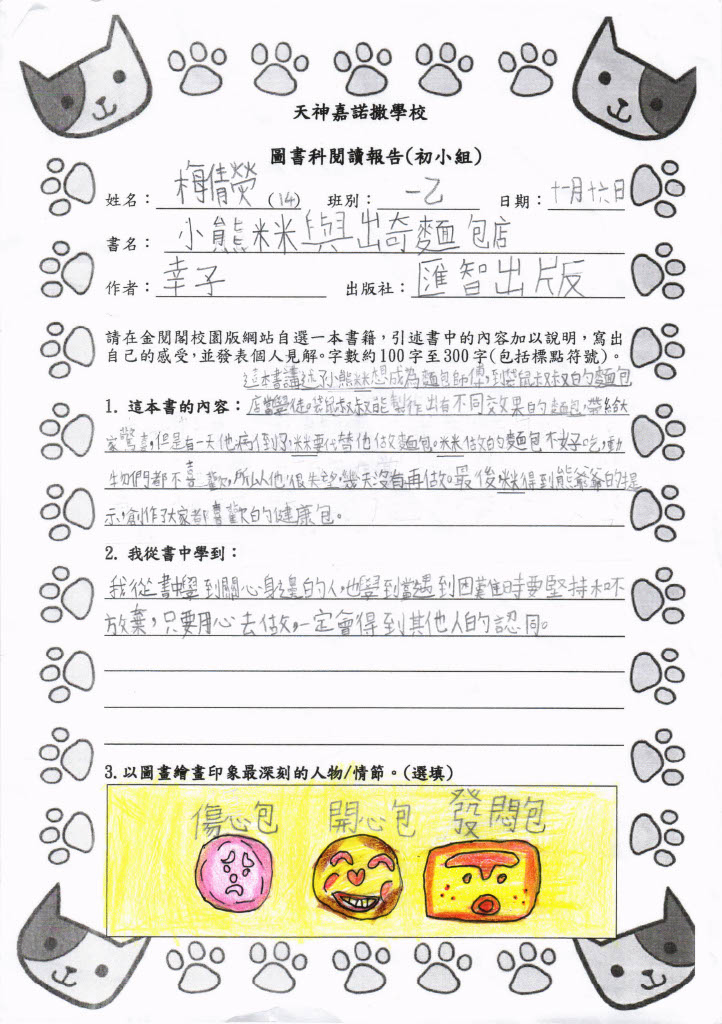 天神嘉諾撒學校
圖書科閱讀報告(初小組)
姓名：梅倩熒(14) 班別：一乙 日期：十一月十六日
書名：小熊米米與出奇麵包店
作者：幸子 出版社：匯智出版
請在金閱閣校園版網站自選一本書籍，引述書中的內容加以說明，寫出
自己的感受，並發表個人見解。字數約100字至300字(包括標點符號)。
這本書講述了小熊米米想成為麵包師傅，到袋鼠叔叔的麵包
1. 這本書的內容：店當學徒。袋鼠叔叔能製作出有不同效果的麵包，帶給大
家驚喜，但是有一天他病倒了，米米要代替他做麵包。米米做的麵包不好吃，動
物們都不喜歡，所以他很失望，幾天沒有再做。最後米米得到熊爺爺的提
示，創作了大家都喜歡的健康包。
2. 我從書中學到：
我從書中學到關心身邊的人，也學到當遇到困難時要堅持和不
放棄，只要用心去做，一定會得到其他人的認同。
3.以圖畫繪畫印象最深刻的人物/情節。(選填)
傷心包 開心包 發悶包